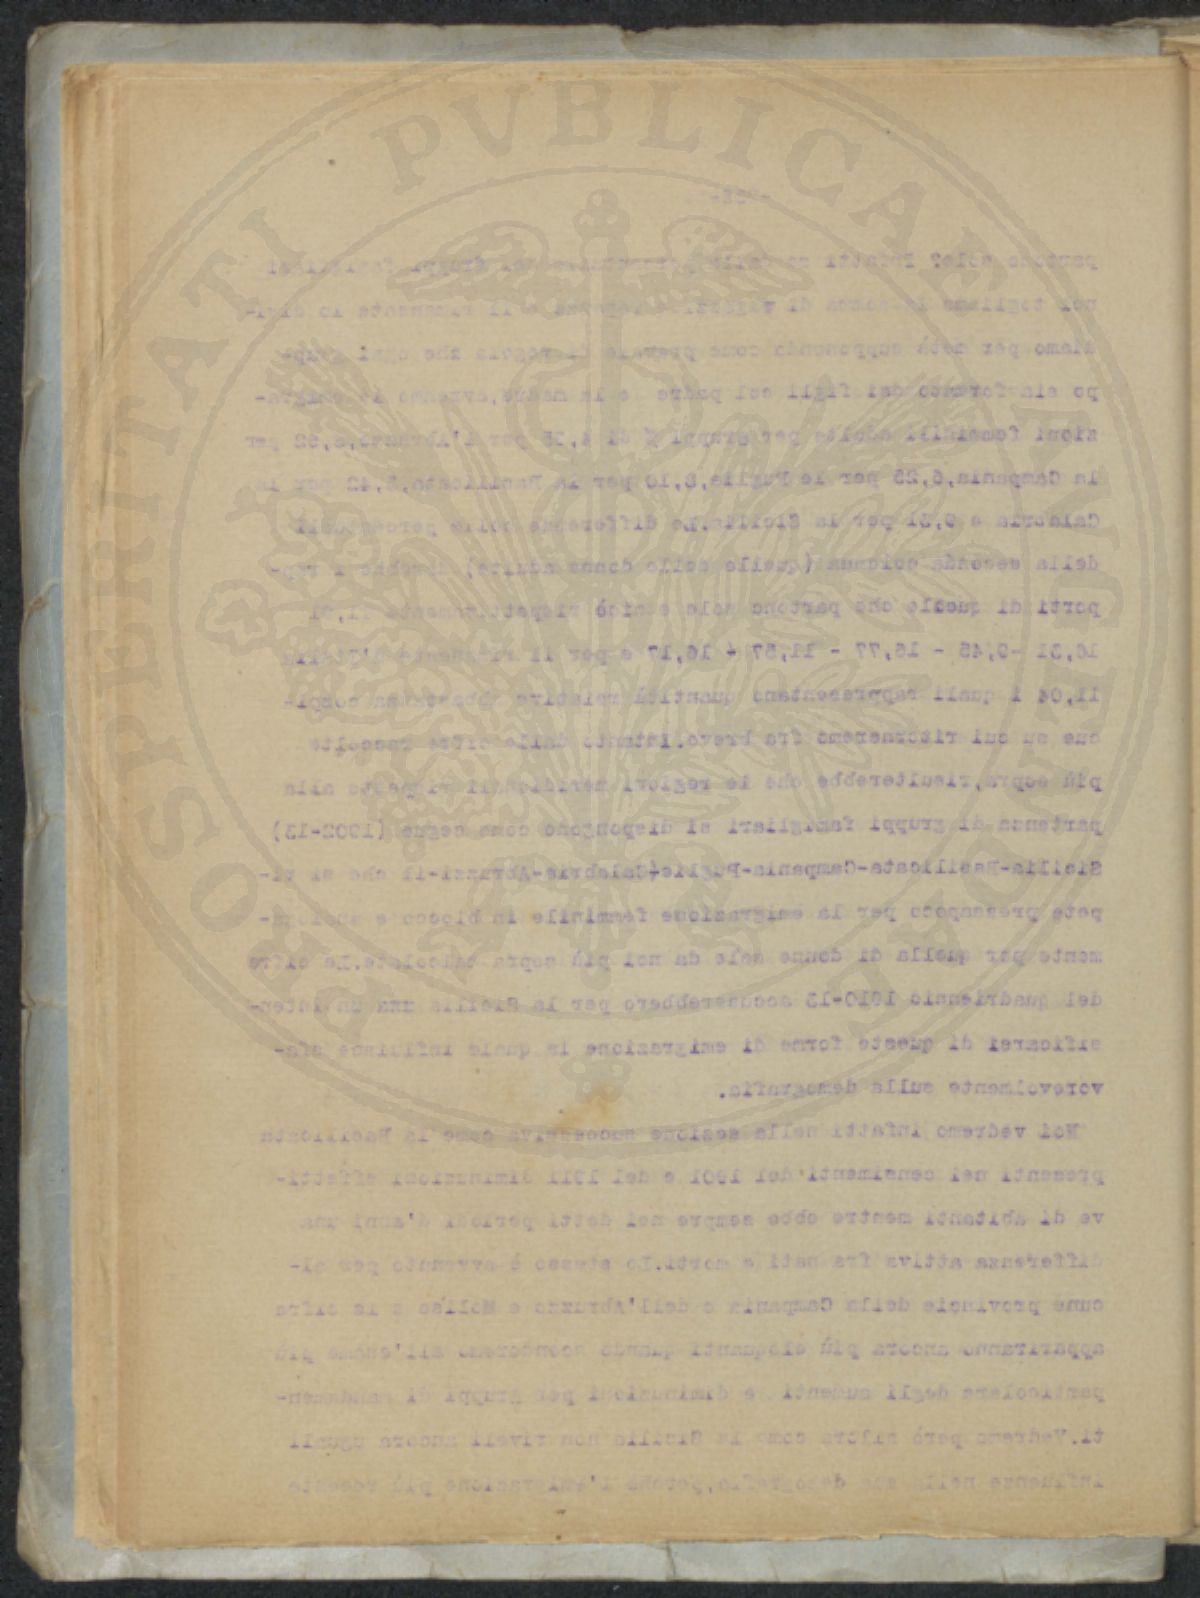 PROSPERITATI PVBLICAE AVGENDAE
partono sole? Infatti se dalle percentuali dei gruppi famigliari
noi togliamo la somma di ragazzi e ragazze e il rimanente lo divi-
diamo per metà supponendo come prevale di regola che ogni grup-
po sia formato dai figli col padre e la madre, avremo le emigra-
zioni femminili adulte per gruppi di 4,35 per l'Abruzzo, 8,52 per
la Campania, 6,25 per le Puglie, 8,10 per la Basilicata, 5,42 per la
Calabria e 9,31 per la Sicilia. Le differenze colle percentuali
della seconda colonna (quelle delle donne adulte) darebbe i rap-
porti di quelle che partono sole e cioè rispettivamente 11,91
16,31 -9,45 - 16,77 - 11,57 + 16,17 e per il rimanente d'Italia
11,04 i quali rappresentano quantità relative abbastanza compi-
cue su cui ritorneremo fra breve. Intanto dalle cifre raccolte
più sopra, risulterebbe che le regioni meridionali rispetto alla
partenza di gruppi famigliari si dispongono come segue (1902-13)
Sicilia-Basilicata-Campania-Puglie-Calabrie-Abruzzi-il che si ri-
pete pressapoco per la emigrazione femminile in blocco e analoga-
mente per quella di donne sole da noi più sopra calcolate. Le cifre
del quadriennio 1910-13 accuserebbero per la Sicilia una un inten-
sificarsi di queste forme di emigrazione la quale influisce sfa-
vorevolmente sulla demografia.
Noi vedremo infatti nella sezione successiva come la Basilicata
presenti nei censimenti del 1901 e del 1911 diminuzioni effetti-
ve di abitanti mentre ebbe sempre nei detti periodi d'anni una
differenza attiva fra nati e morti. Lo stesso è avvenuto per al-
cune provincie della Campania e dell'Abruzzo e Molise e le cifre
appariranno ancora più eloquenti quando scenderemo all'esame più
particolare degli aumenti e diminuzioni per gruppi di mandamen-
ti. Vedremo però allora come la Sicilia non riveli ancora uguali
influenze nella sua demografia, perchè l'emigrazione più recente